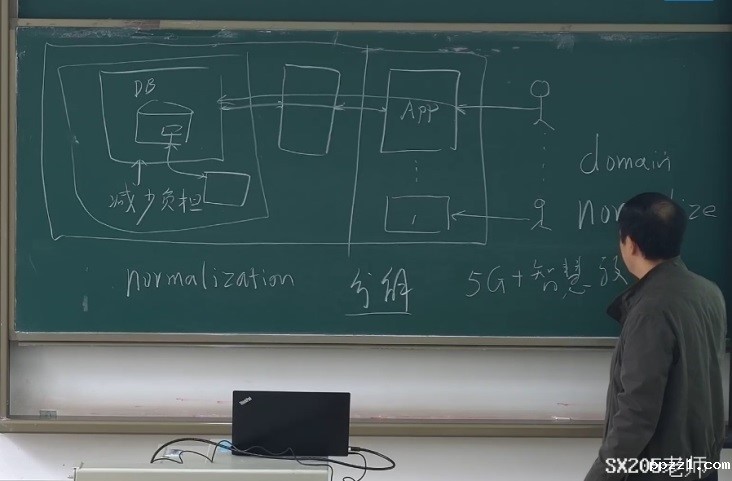 DB
APP
减少负担
domain
normalize
normalization
分组
5G+智慧
SX205老师
ppzz1.com